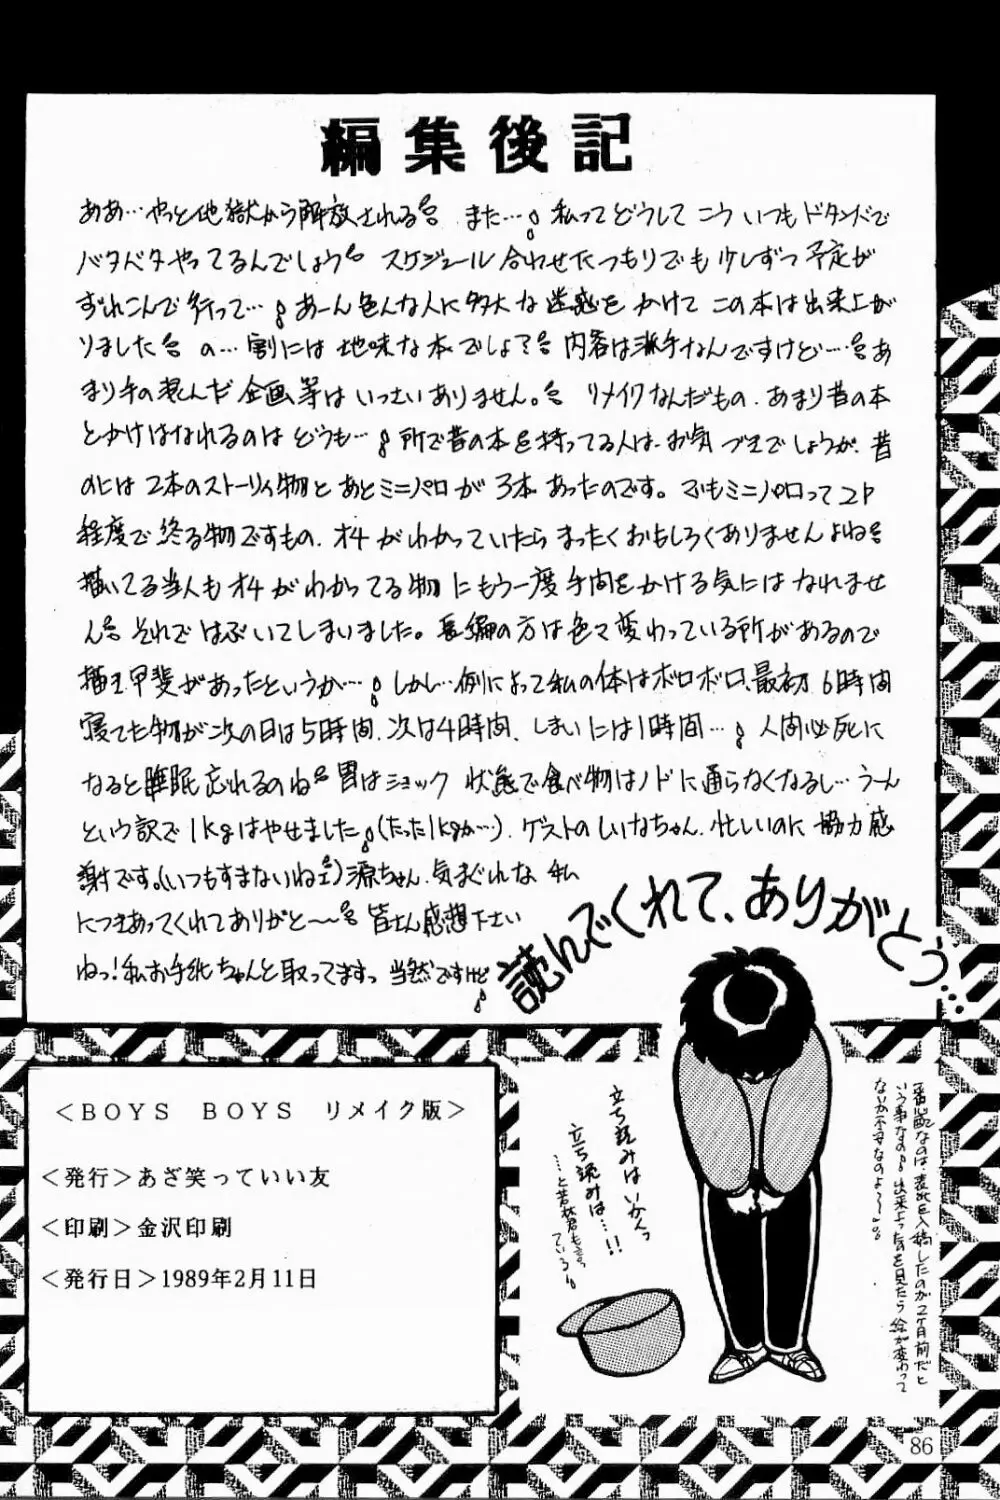 編集後記
ああ…やっと地獄から解放される。また…。私ってどうしてこういつもドタンバで
バタバタやってるんでしょう。スケジュール合わせたつもりでも少しずつ予定が
ずれこんで行って…。あーん色んな人に多大な迷惑をかけてこの本は出来上が
りました。の…割には地味な本でしょ?。内容は派手なんですけど…。あ
まり手の混んだ企画等はいっさいありません。。リメイクなんだもの、あまり昔の本
とかけはなれるのはどうも…。所で昔の本を持ってる人は、お気づきでしょうが、昔
のには2本のストーリィ物とあとミニパロが3本あったのです。でもミニパロって2P
程度で終る物ですもの、オチがわかっていたらまったくおもしろくありませんよね。
描いてる当人もオチがわかってる物にもう一度手間をかける気にはなれませ
ん。それではぶいてしまいました。長編の方は色々変わっている所があるので
描き甲斐があったというか…。しかし…例によって私の体はボロボロ、最初6時間
寝てた物が次の日は5時間、次は4時間、しまいには1時間…。人間必死に
なると睡眠忘れるのね。胃はショック状態で食べ物はノドに通らなくなるし…うーん
という訳で1kgはやせました。(たった1kgか…)、ゲストのしいなちゃん、忙しいのに協力感
謝です。(いつもすまないねェ)源ちゃん、気まぐれな私
につきあってくれてありがと〜〜。皆さん感想下さい
ねっ!私お手紙ちゃんと取ってますっ当然ですけど
読んでくれて、ありがとう…
<BOYS BOYS リメイク版>
<発行>あざ笑っていい友
<印刷>金沢印刷
<発行日>1989年2月11日
立ち読みはいかんっ
立ち読みは…!!
…と若林君も言っ
ている。
一番心配なのは、表紙を入稿したのが2ヶ月前だと
いう事なの。出来上ったのを見たら絵が変わって
ないか不安なのよ〜。
86